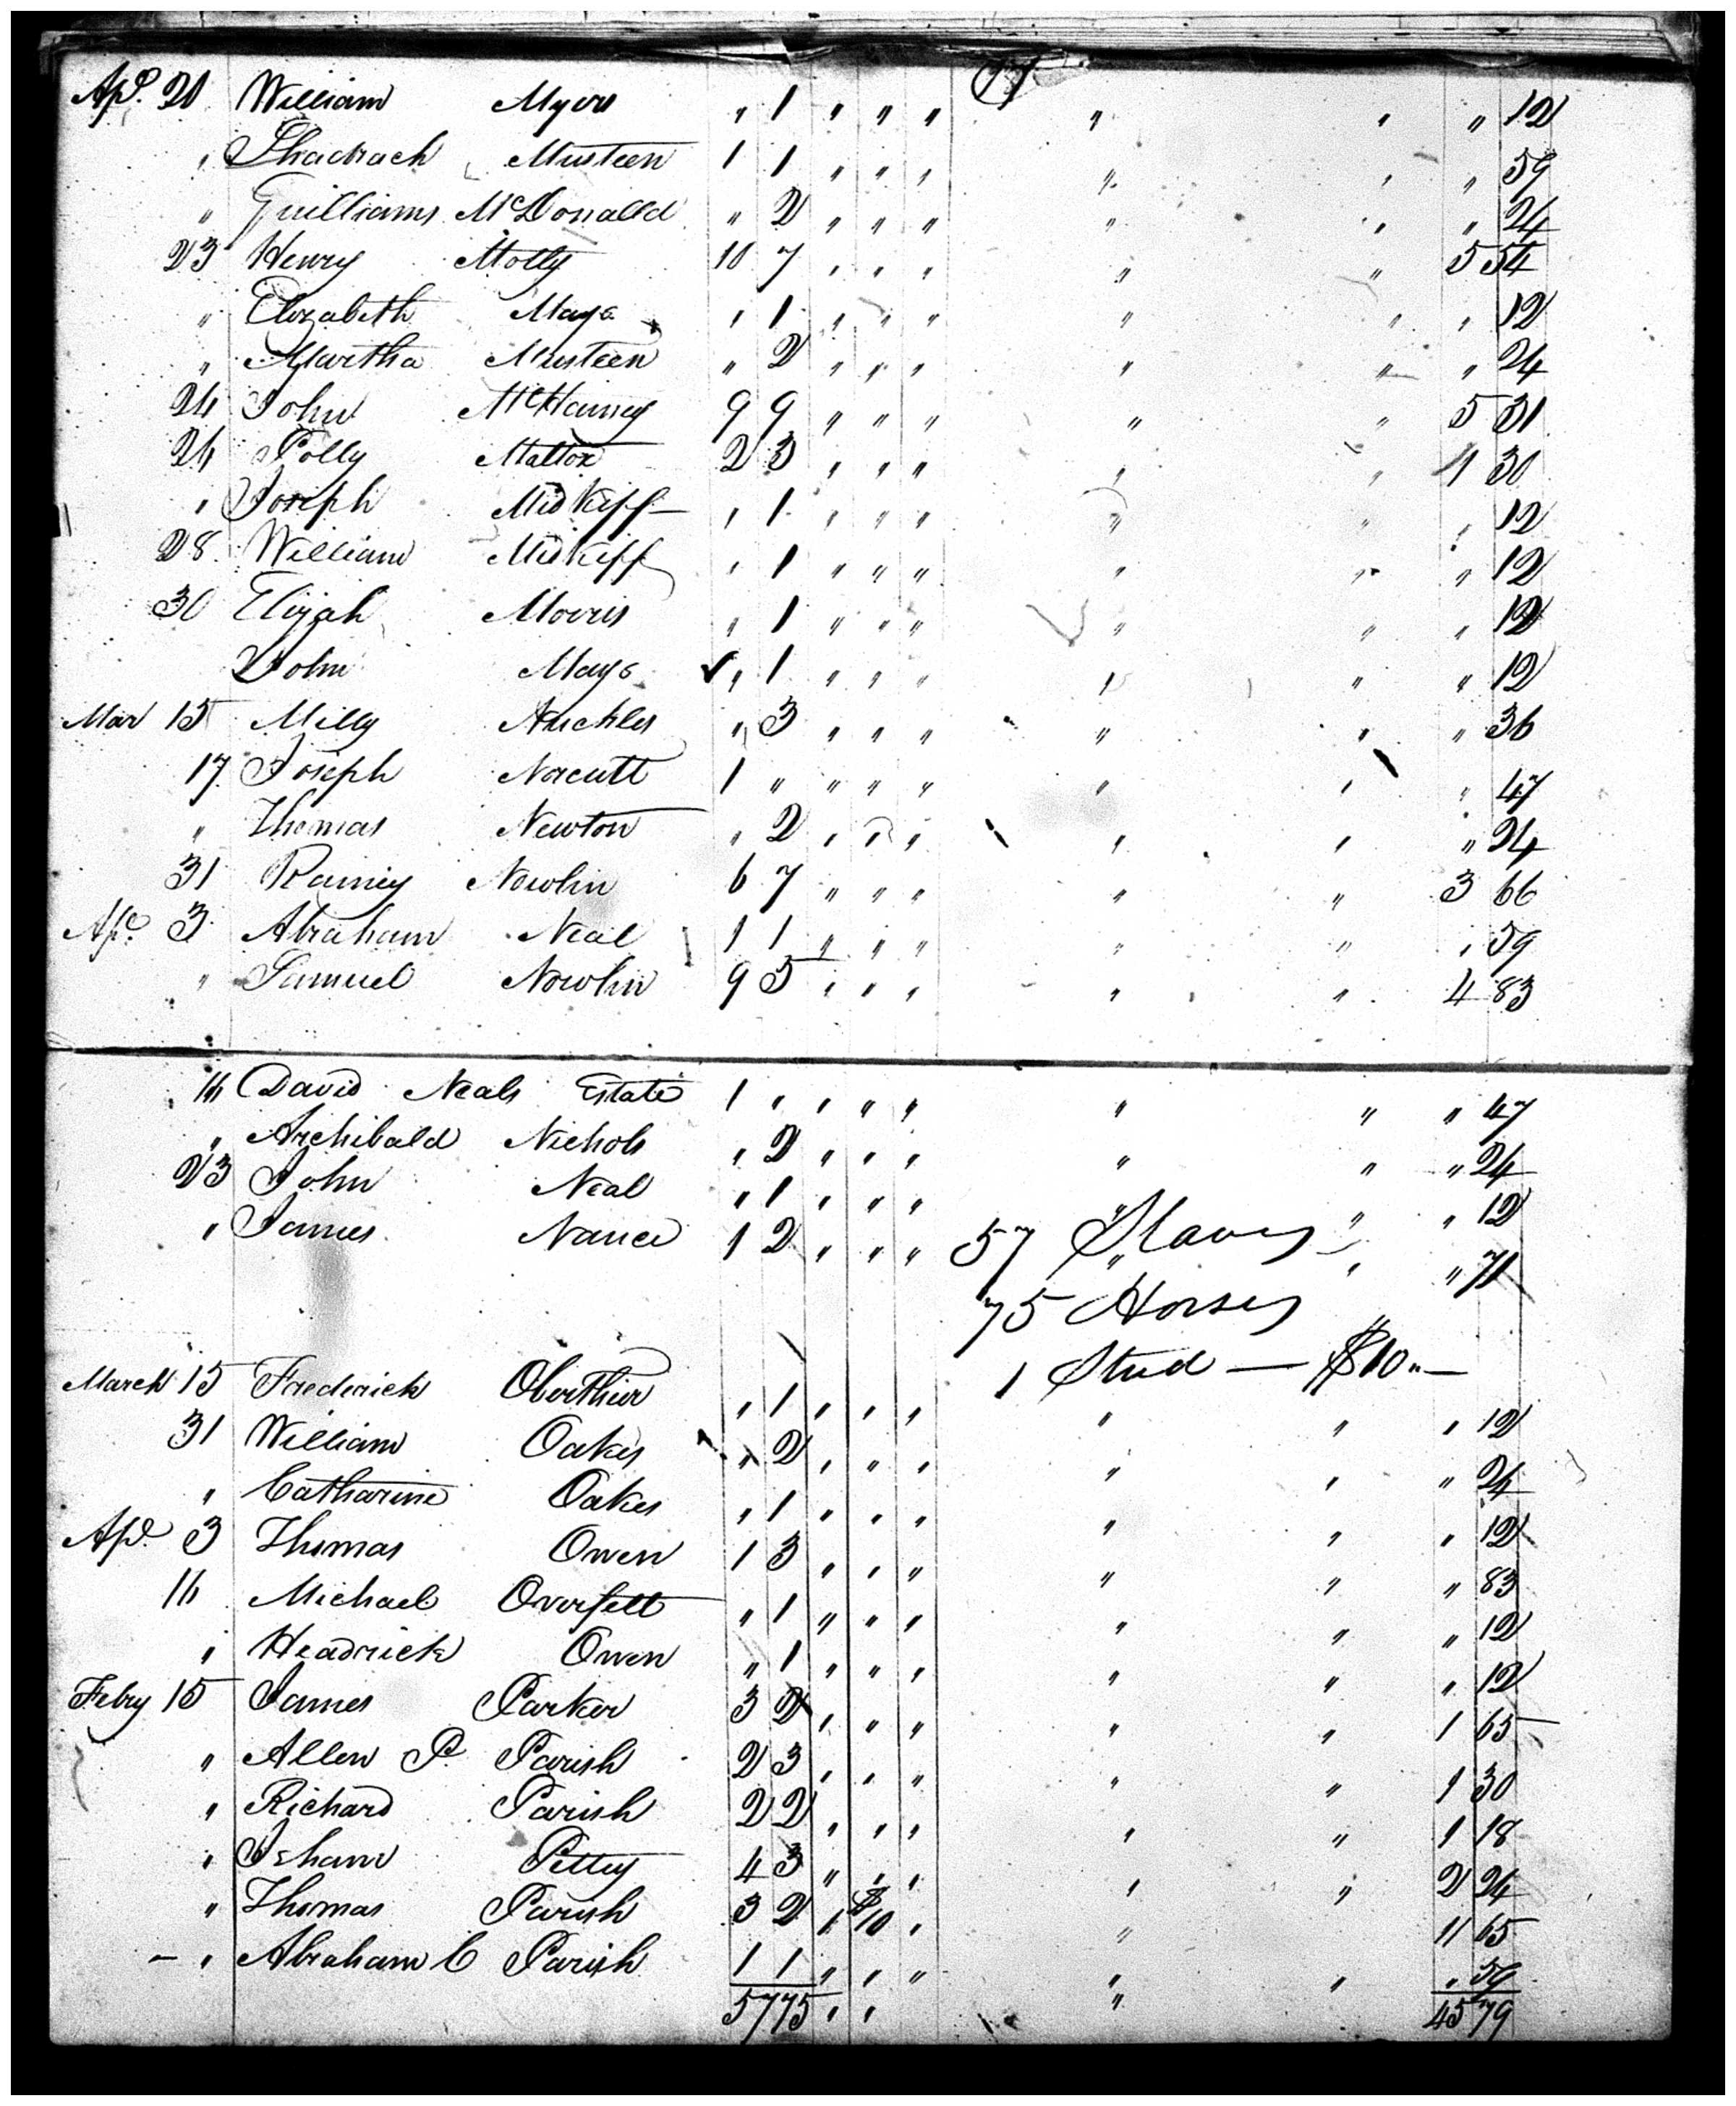 Apl. 20 William Myers " 1 " " " " " " 12
" Shadrach Musteen 1 1 " " " " " " 59
" Guilliams McDonald " 2 " " " " " " 24
23 Henry Motly 10 7 " " " " " 5 54
" Elizabeth Mays " 1 " " " " " " 12
" Martha Musteen " 2 " " " " " " 24
24 John McHaney 9 9 " " " " " 5 31
24 Polly Mattox 2 3 " " " " " 1 30
" Joseph Midkiff " 1 " " " " " " 12
28 William Midkiff " 1 " " " " " " 12
30 Elijah Morris " 1 " " " " " " 12
John Mays " 1 " " " " " " 12
Mar 15 Milly Nuckles " 3 " " " " " " 36
17 Joseph Norcutt 1 " " " " " " " 47
" Thomas Newton " 2 " " " " " " 24
31 Rainey Nowlin 6 7 " " " " " 3 66
Apl. 3 Abraham Neal 1 1 " " " " " " 59
" Samuel Nowlin 9 5 " " " " " 4 83
16 David Neals Estate 1 " " " " " " " 47
" Archibald Nichols " 2 " " " " " " 24
23 John Neal " 1 " " " " " " 12
" James Nance 1 2 " " " " " " 71
57 Slaves
75 Horses
1 Stud — $10"—
March 15 Frederick Oberthier " 1 " " " " " " 12
31 William Oakes " 2 " " " " " " 24
" Catharine Oakes " 1 " " " " " " 12
Apl. 3 Thomas Owen 1 3 " " " " " " 83
16 Michael Overfelt " 1 " " " " " " 12
" Headrick Owen " 1 " " " " " " 12
Febry 15 James Parker 3 2 " " " " " 1 65
" Allen P. Parish 2 3 " " " " " 1 30
" Richard Parish 2 2 " " " " " 1 18
" Isham Petty 4 3 " " " " " 2 24
" Thomas Parish 3 2 1 $10 " " 11 65
" Abraham C Parish 1 1 " " " " " " 59
57 75 " " " 45 79